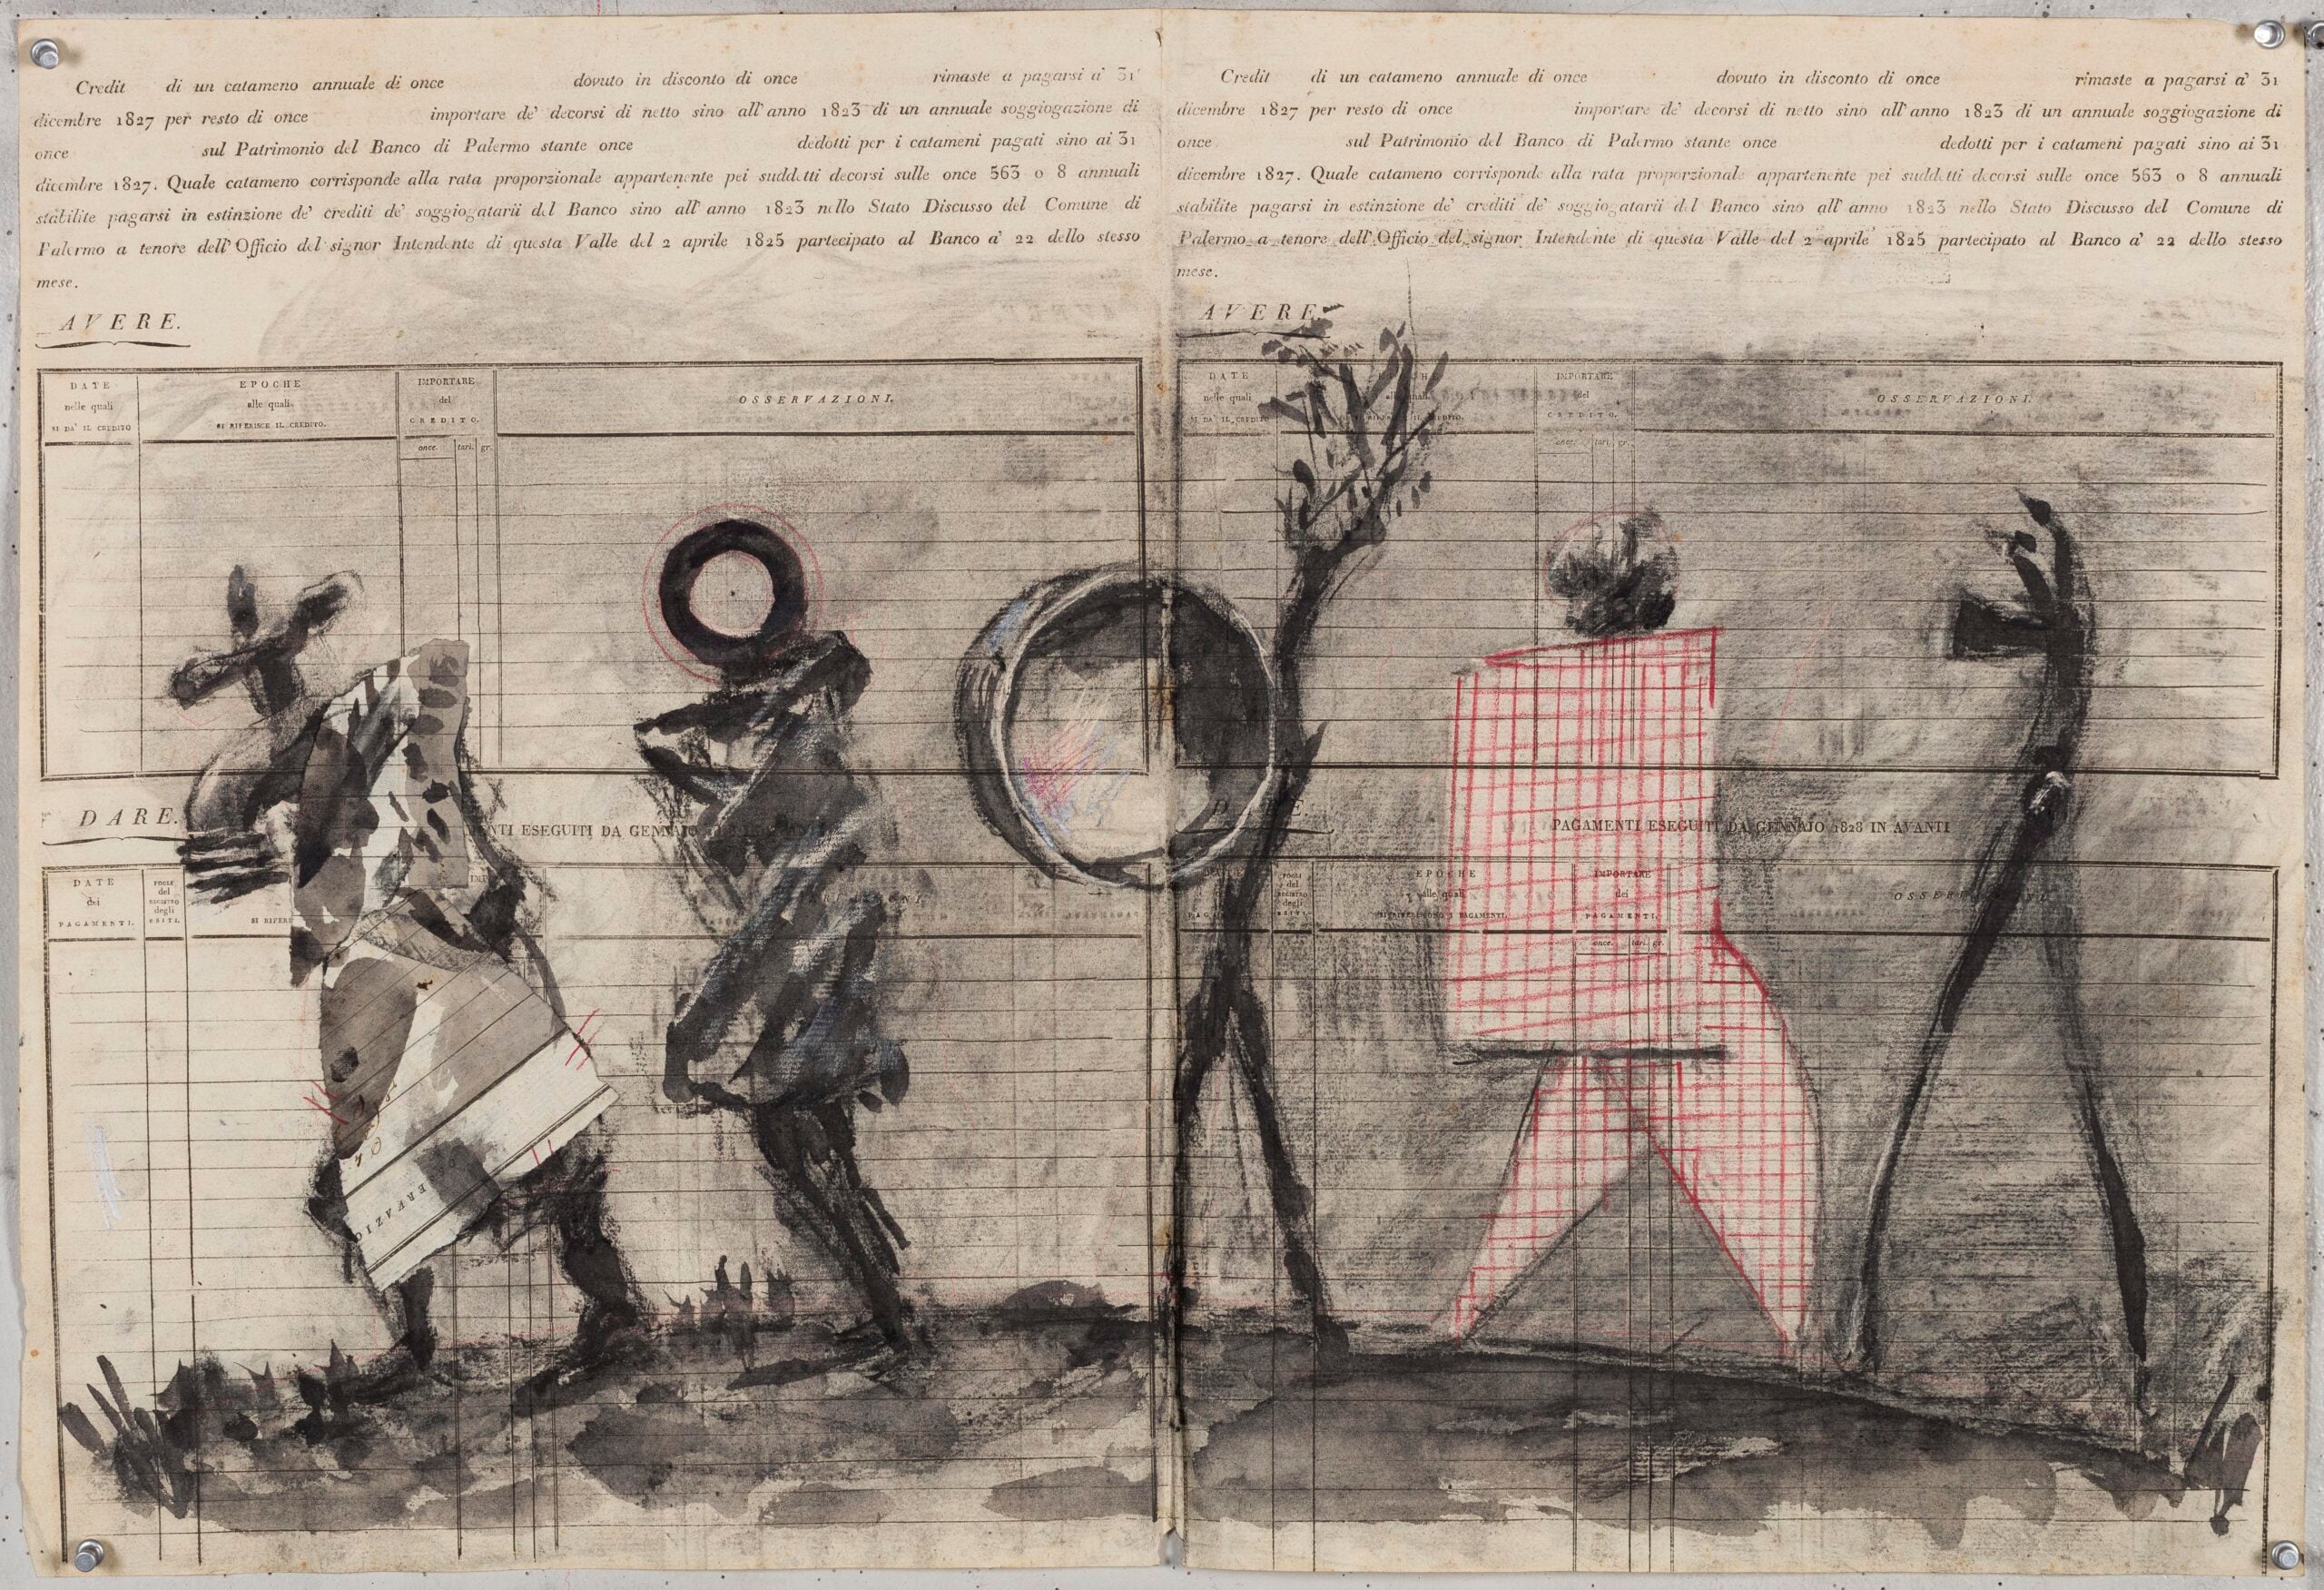 Credit di un catameno annuale di once dovuto in disconto di once rimaste a pagarsi a' 31
dicembre 1827 per resto di once importare de' decorsi di netto sino all'anno 1823 di un annuale soggiogazione di
once sul Patrimonio del Banco di Palermo stante once dedotti per i catameni pagati sino ai 31
dicembre 1827. Quale catameno corrisponde alla rata proporzionale appartenente pei suddetti decorsi sulle once 563 o 8 annuali
stabilite pagarsi in estinzione de' crediti de' soggiogatarii del Banco sino all'anno 1823 nello Stato Discusso del Comune di
Palermo a tenore dell'Officio del signor Intendente di questa Valle del 2 aprile 1825 partecipato al Banco a' 22 dello stesso
mese.
AVERE.
DATE
nelle quali
SI DA' IL CREDITO
EPOCHE
alle quali
SI RIFERISCE IL CREDITO.
IMPORTARE
del
CREDITO.
once. tari. gr.
OSSERVAZIONI.
DARE.
ENTI ESEGUITI DA GENNAIO
DATE
dei
PAGAMENTI.
FOGLI
del
REGISTRO
degli
ESITI.
SI RIFERI
ERVAZIO
Credit di un catameno annuale di once dovuto in disconto di once rimaste a pagarsi a' 31
dicembre 1827 per resto di once importare de' decorsi di netto sino all'anno 1823 di un annuale soggiogazione di
once sul Patrimonio del Banco di Palermo stante once dedotti per i catameni pagati sino ai 31
dicembre 1827. Quale catameno corrisponde alla rata proporzionale appartenente pei suddetti decorsi sulle once 563 o 8 annuali
stabilite pagarsi in estinzione de' crediti de' soggiogatarii del Banco sino all'anno 1823 nello Stato Discusso del Comune di
Palermo a tenore dell'Officio del signor Intendente di questa Valle del 2 aprile 1825 partecipato al Banco a' 22 dello stesso
mese.
AVERE.
DATE
nelle quali
SI DA' IL CREDITO
IMPORTARE
del
CREDITO.
once. tari. gr.
OSSERVAZIONI.
PAGAMENTI ESEGUITI DA GENNAIO 1828 IN AVANTI
FOGLI
del
REGISTRO
degli
ESITI.
EPOCHE
alle quali
SI RIFERISCONO I PAGAMENTI.
IMPORTARE
dei
PAGAMENTI.
once. tari. gr.